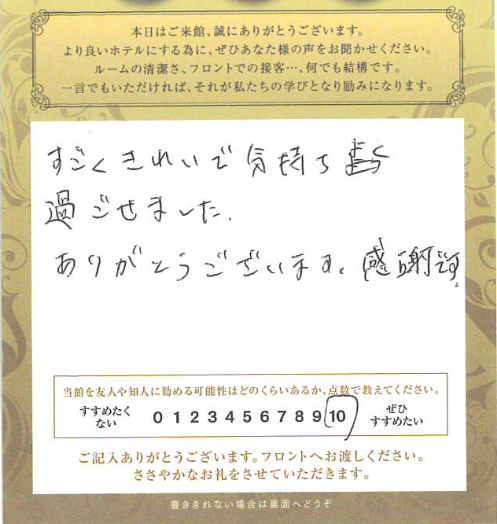 本日はご来館、誠にありがとうございます。
より良いホテルにする為に、ぜひあなた様の声をお聞かせください。
ルームの清潔さ、フロントでの接客…、何でも結構です。
一言でもいただければ、それが私たちの学びとなり励みになります。
すごくきれいで気持ち
過ごせました.
ありがとうございます。感謝です。
当館を友人や知人に勧める可能性はどのくらいあるか、点数で教えてください。
すすめたくない 0 1 2 3 4 5 6 7 8 9 10 ぜひすすめたい
ご記入ありがとうございます。フロントへお渡しください。
ささやかなお礼をさせていただきます。
書ききれない場合は裏面へどうぞ